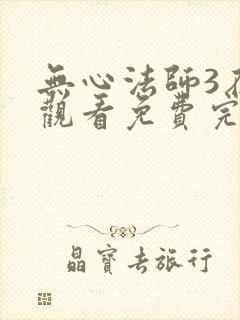 無心法師3
觀看免費完
晶寶去旅行